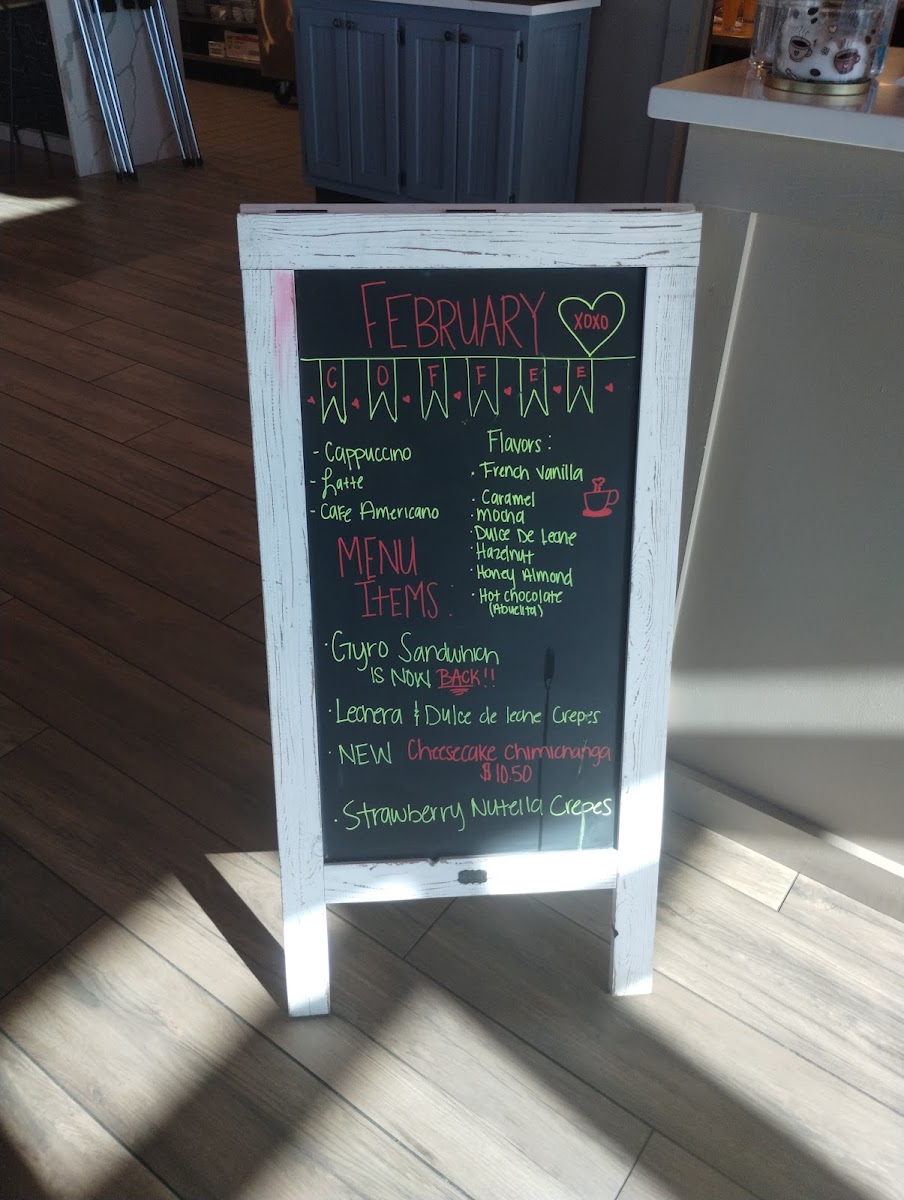 FEBRUARY
XOXO
COFFEE
- Cappuccino
- Latte
- Cafe Americano
Flavors :
· French Vanilla
· Caramel
· Mocha
· Dulce De Leche
· Hazelnut
· Honey Almond
· Hot chocolate
(Abuelita)
MENU
ITEMS :
· Gyro Sandwhich
IS NOW BACK!!
· Lechera & Dulce de leche Crepes
· NEW Cheesecake Chimichanga
$10.50
· Strawberry Nutella Crepes